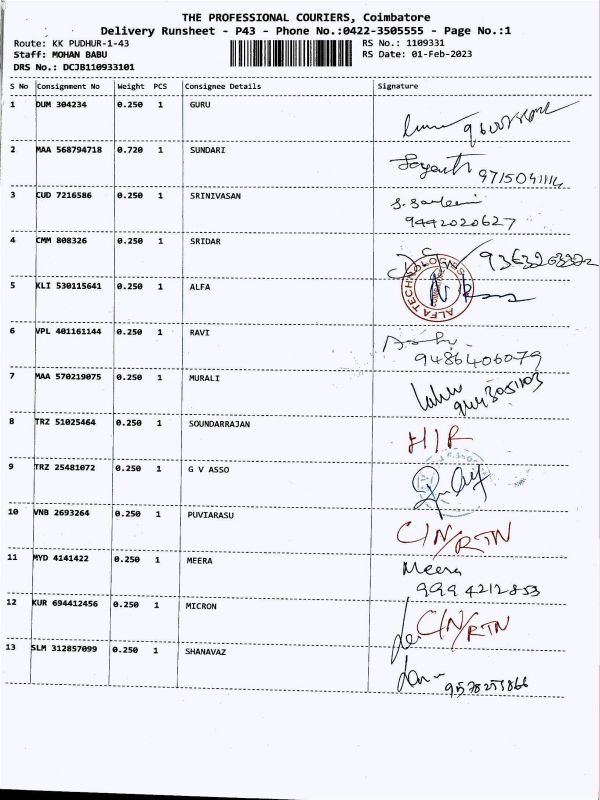 THE PROFESSIONAL COURIERS, Coimbatore
Delivery Runsheet - P43 - Phone No.:0422-3505555 - Page No.:1
Route: KK PUDHUR-1-43 RS No.: 1109331
Staff: MOHAN BABU RS Date: 01-Feb-2023
DRS No.: DCJB110933101
S No Consignment No Weight PCS Consignee Details Signature
1 DUM 304234 0.250 1 GURU
2 MAA 568794718 0.720 1 SUNDARI
3 CUD 7216586 0.250 1 SRINIVASAN
9442020627
4 CMM 808326 0.250 1 SRIDAR
5 KLI 530115641 0.250 1 ALFA
ALFA TECHNOLOGIES
6 VPL 401161144 0.250 1 RAVI
9486406079
7 MAA 570219075 0.250 1 MURALI
8 TRZ 51025464 0.250 1 SOUNDARRAJAN
9 TRZ 25481072 0.250 1 G V ASSO
10 VNB 2693264 0.250 1 PUVIARASU
C/N/RTN
11 MYD 4141422 0.250 1 MEERA
Meera
9994212853
12 KUR 694412456 0.250 1 MICRON
C/N/RTN
13 SLM 312857099 0.250 1 SHANAVAZ